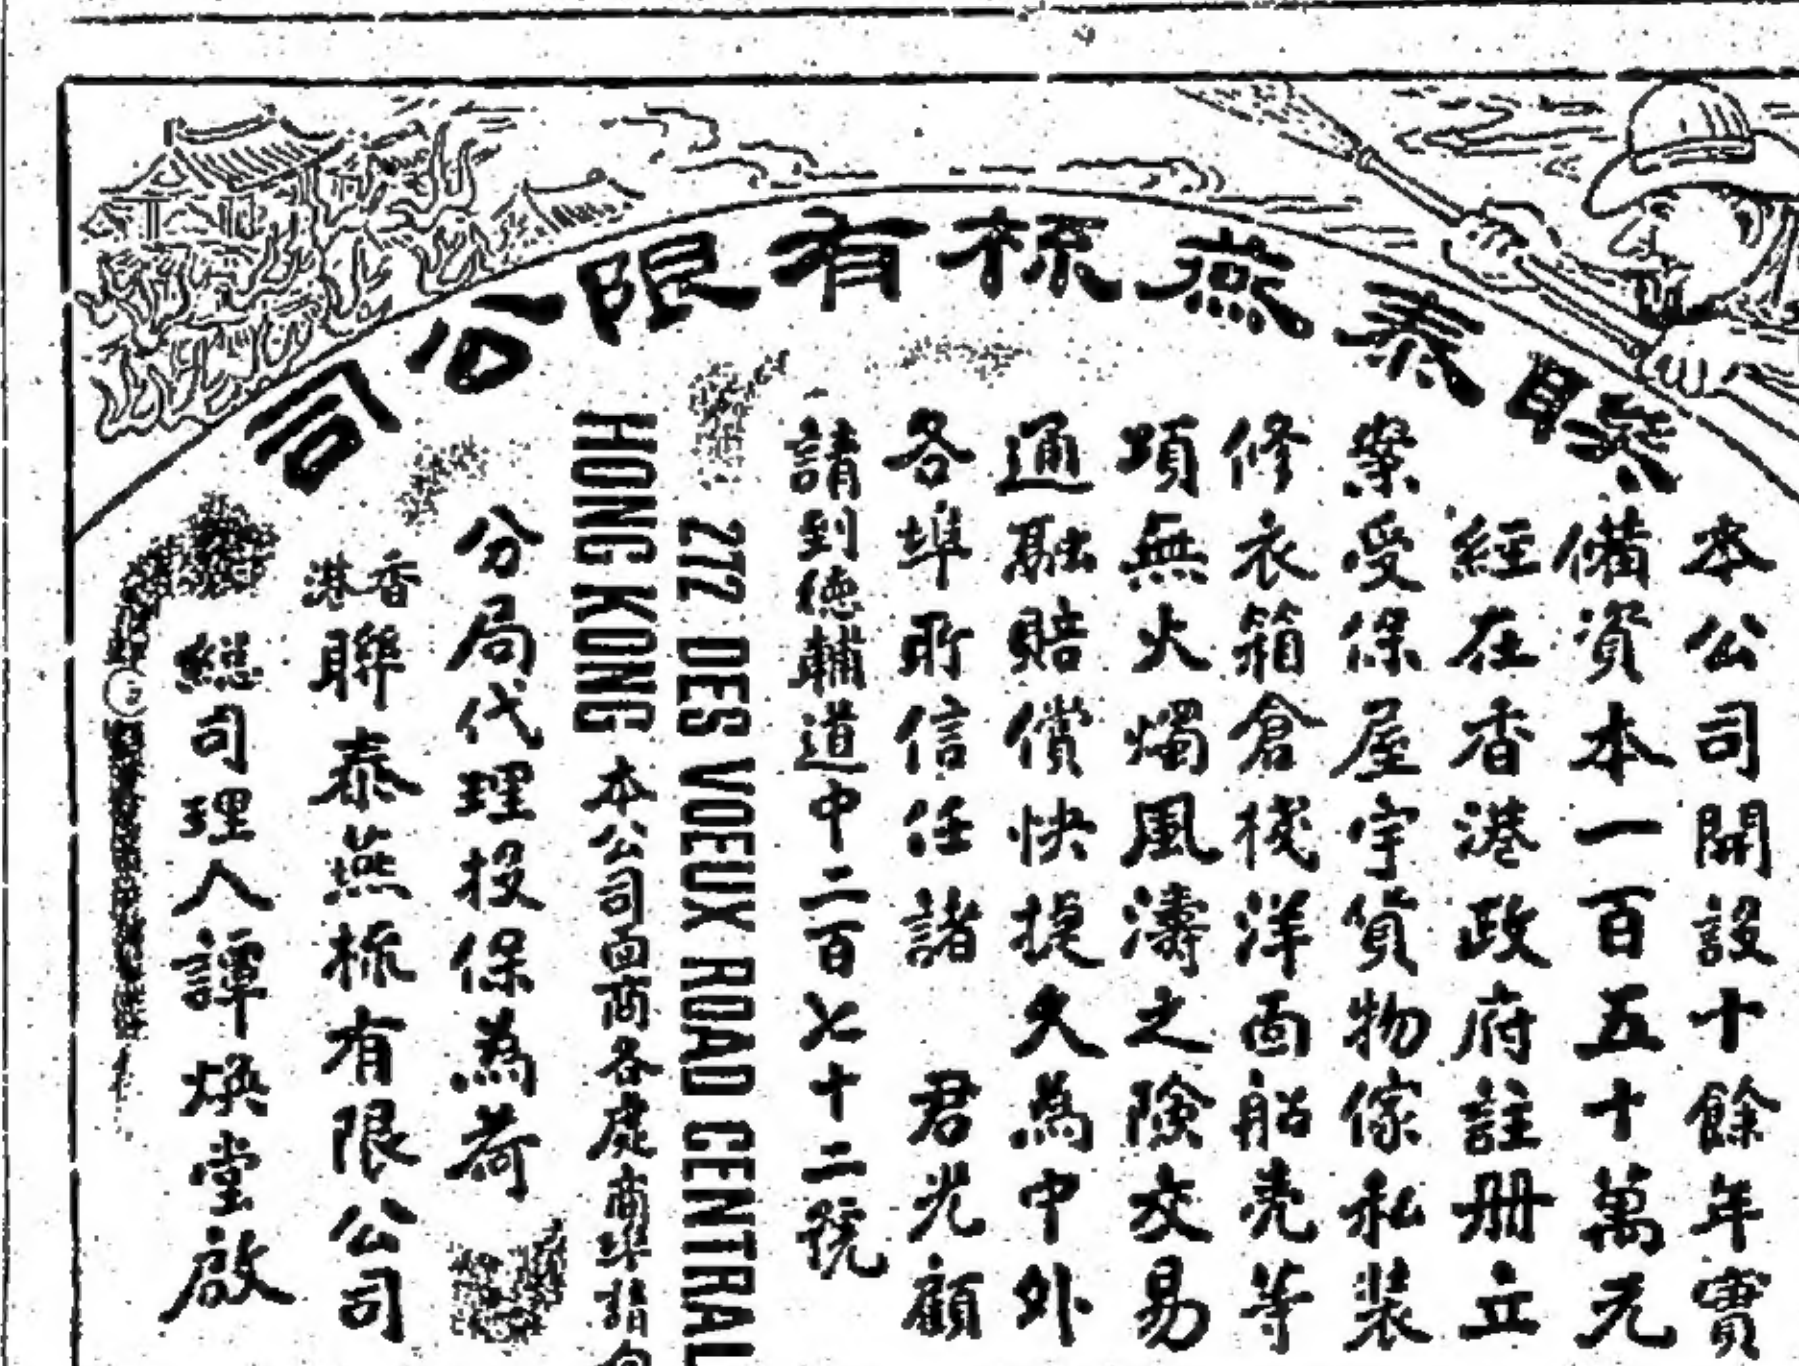 聯泰燕梳有限公司
本公司開設十餘年實
備資本一百五十萬元
經在香港政府註册立
案受保屋宇貨物傢私裝
修衣箱倉棧洋面船壳等
項無火燭風濤之險交易
通融賠償快捷久為中外
各埠所信任諸 君光顧
請到德輔道中二百七十二號
272 DES VOEUX ROAD CENTRAL
HONG KONG 本公司面商各處商埠請向
分局代理投保為荷
香港聯泰燕梳有限公司
總司理人譚煥堂啟